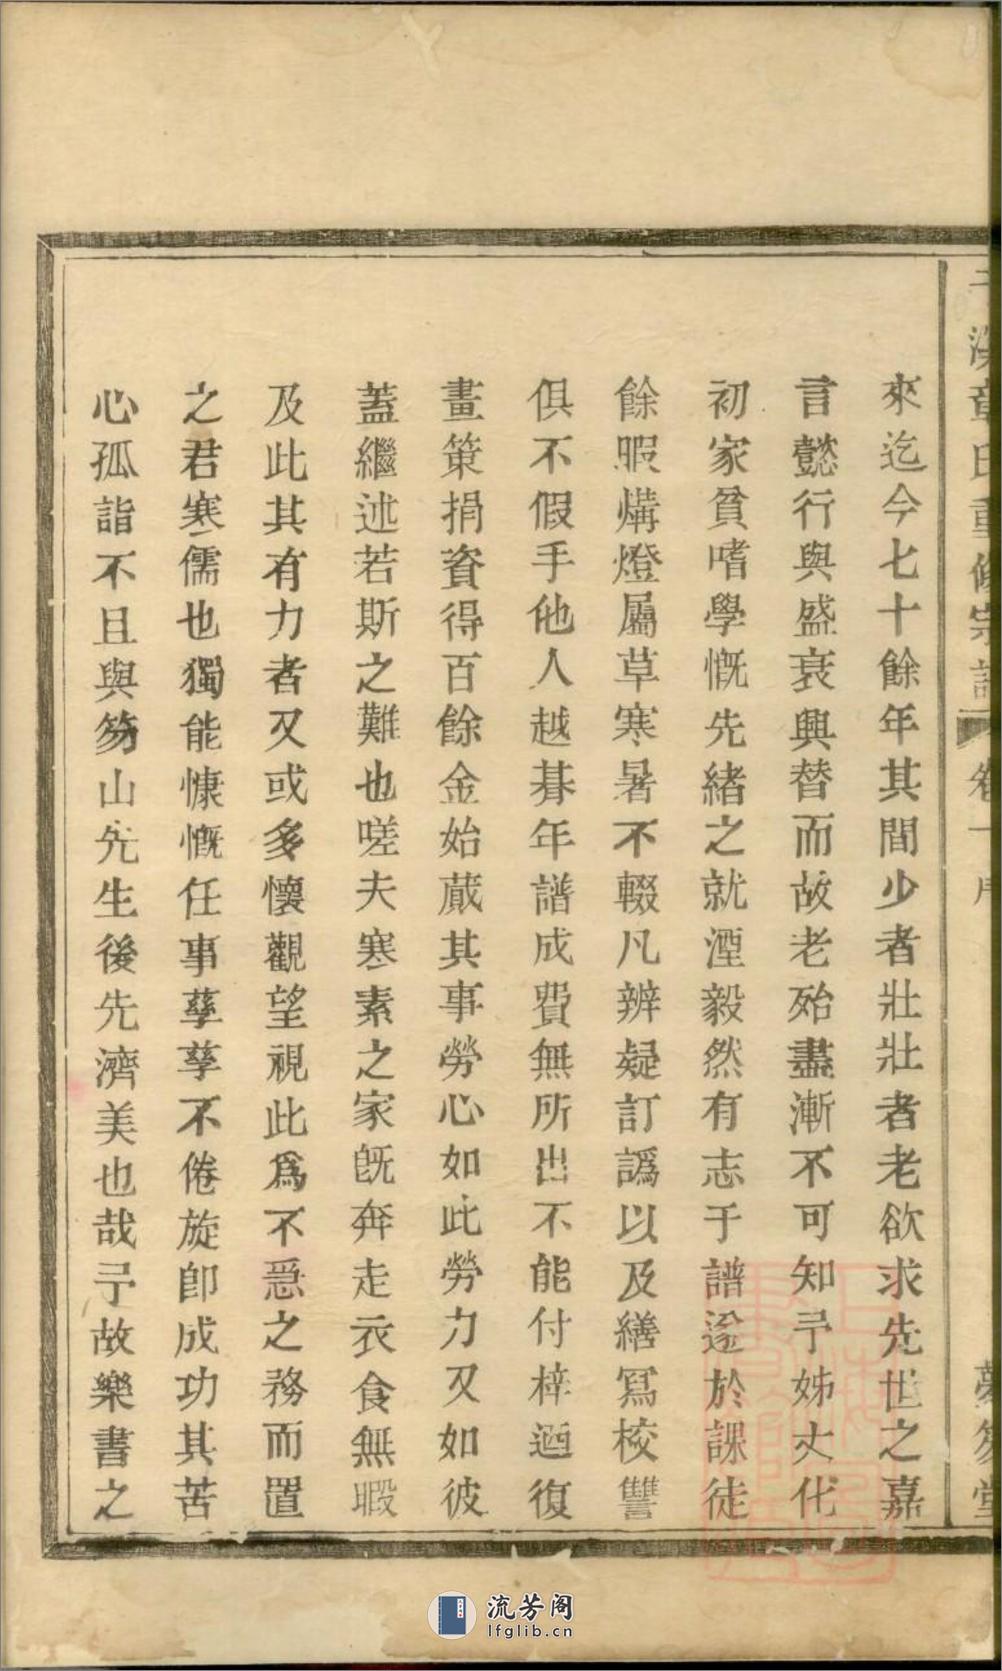 漢章氏重修宗譜 卷一序 夢笏堂
來迄今七十餘年其間少者壯壯者老欲求先世之嘉
言懿行與盛衰興替而故老殆盡漸不可知予姊丈化
初家貧嗜學慨先緒之就湮毅然有志于譜迨於課徒
餘暇燐燈屬草寒暑不輟凡辨疑訂譌以及繕寫校讐
俱不假手他人越朞年譜成費無所出不能付梓迺復
畫策捐資得百餘金始蕆其事勞心如此勞力又如彼
蓋繼述若斯之難也嗟夫寒素之家旣奔走衣食無暇
及此其有力者又或多懷觀望視此爲不急之務而置
之君寒儒也獨能慷慨任事孳孳不倦旋卽成功其苦
心孤詣不且與笏山先生後先濟美也哉予故樂書之
流芳阁
lfglib.cn